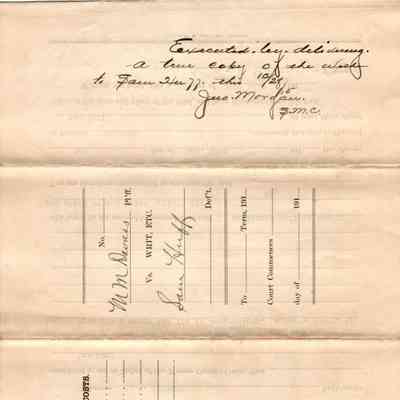 Executed by delivering
a true copy of the within
to Sam Huff this 10/28
Jno. Morgan
No.
M M Davies Pl'ff.
Vs. WRIT, ETC.
Sam Huff
Def't.
To Term, 191
Court Commences
day of 191
COSTS.